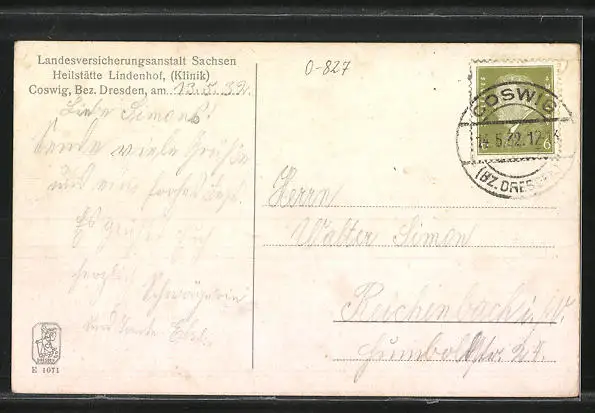 Landesversicherungsanstalt Sachsen
Heilstätte Lindenhof, (Klinik)
Coswig, Bez. Dresden, am 13.5.32.
Liebe Simons!
Sende viele Grüße
und ein frohes
Es grüßt Euch
herzl. Schwägerin
und Tante
E 1071
0-827
COSWIG
14.5.32.12-
(BZ. DRESDEN)
6
Herrn
Walter Simon
Reichenbach i. V.
Humboldtstr. 27.